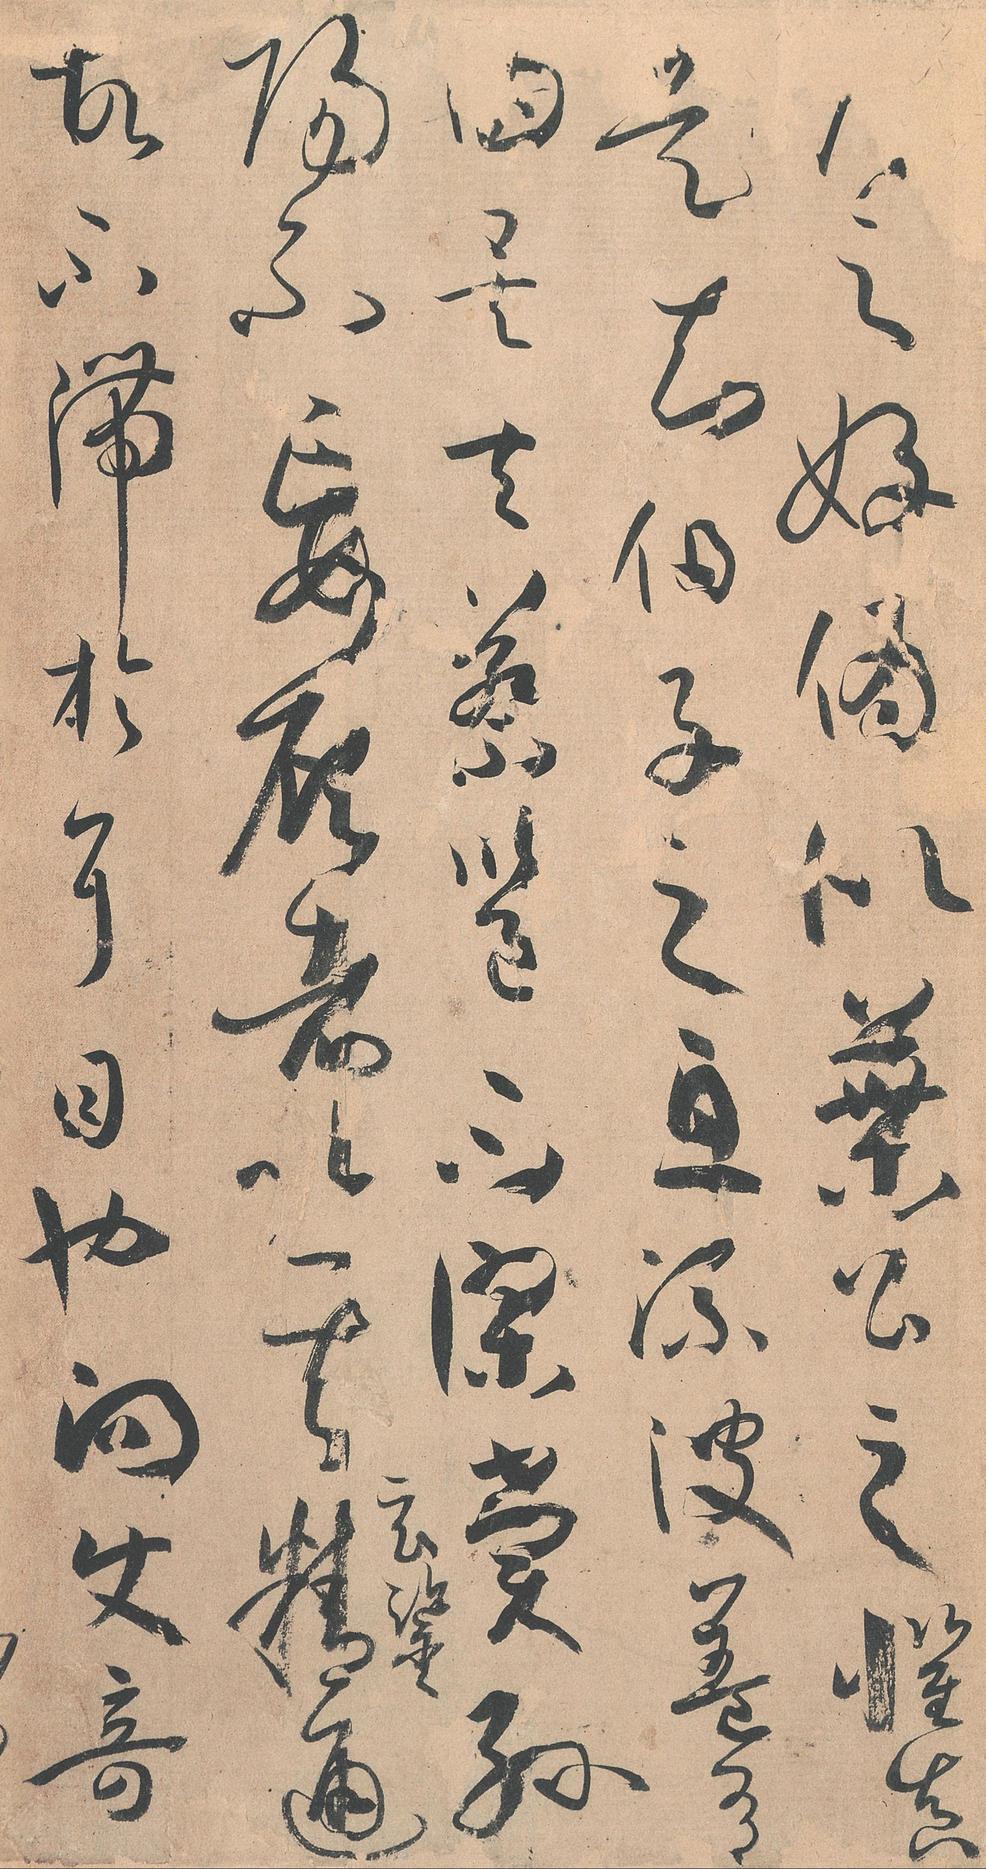 侯之好偽似葉公之懼真
是知伯子之息流波蓋有
由矣夫蔡邕不謬賞孫
陽不妄顧者以其玄鑒精通
故不滯於耳目也向使奇